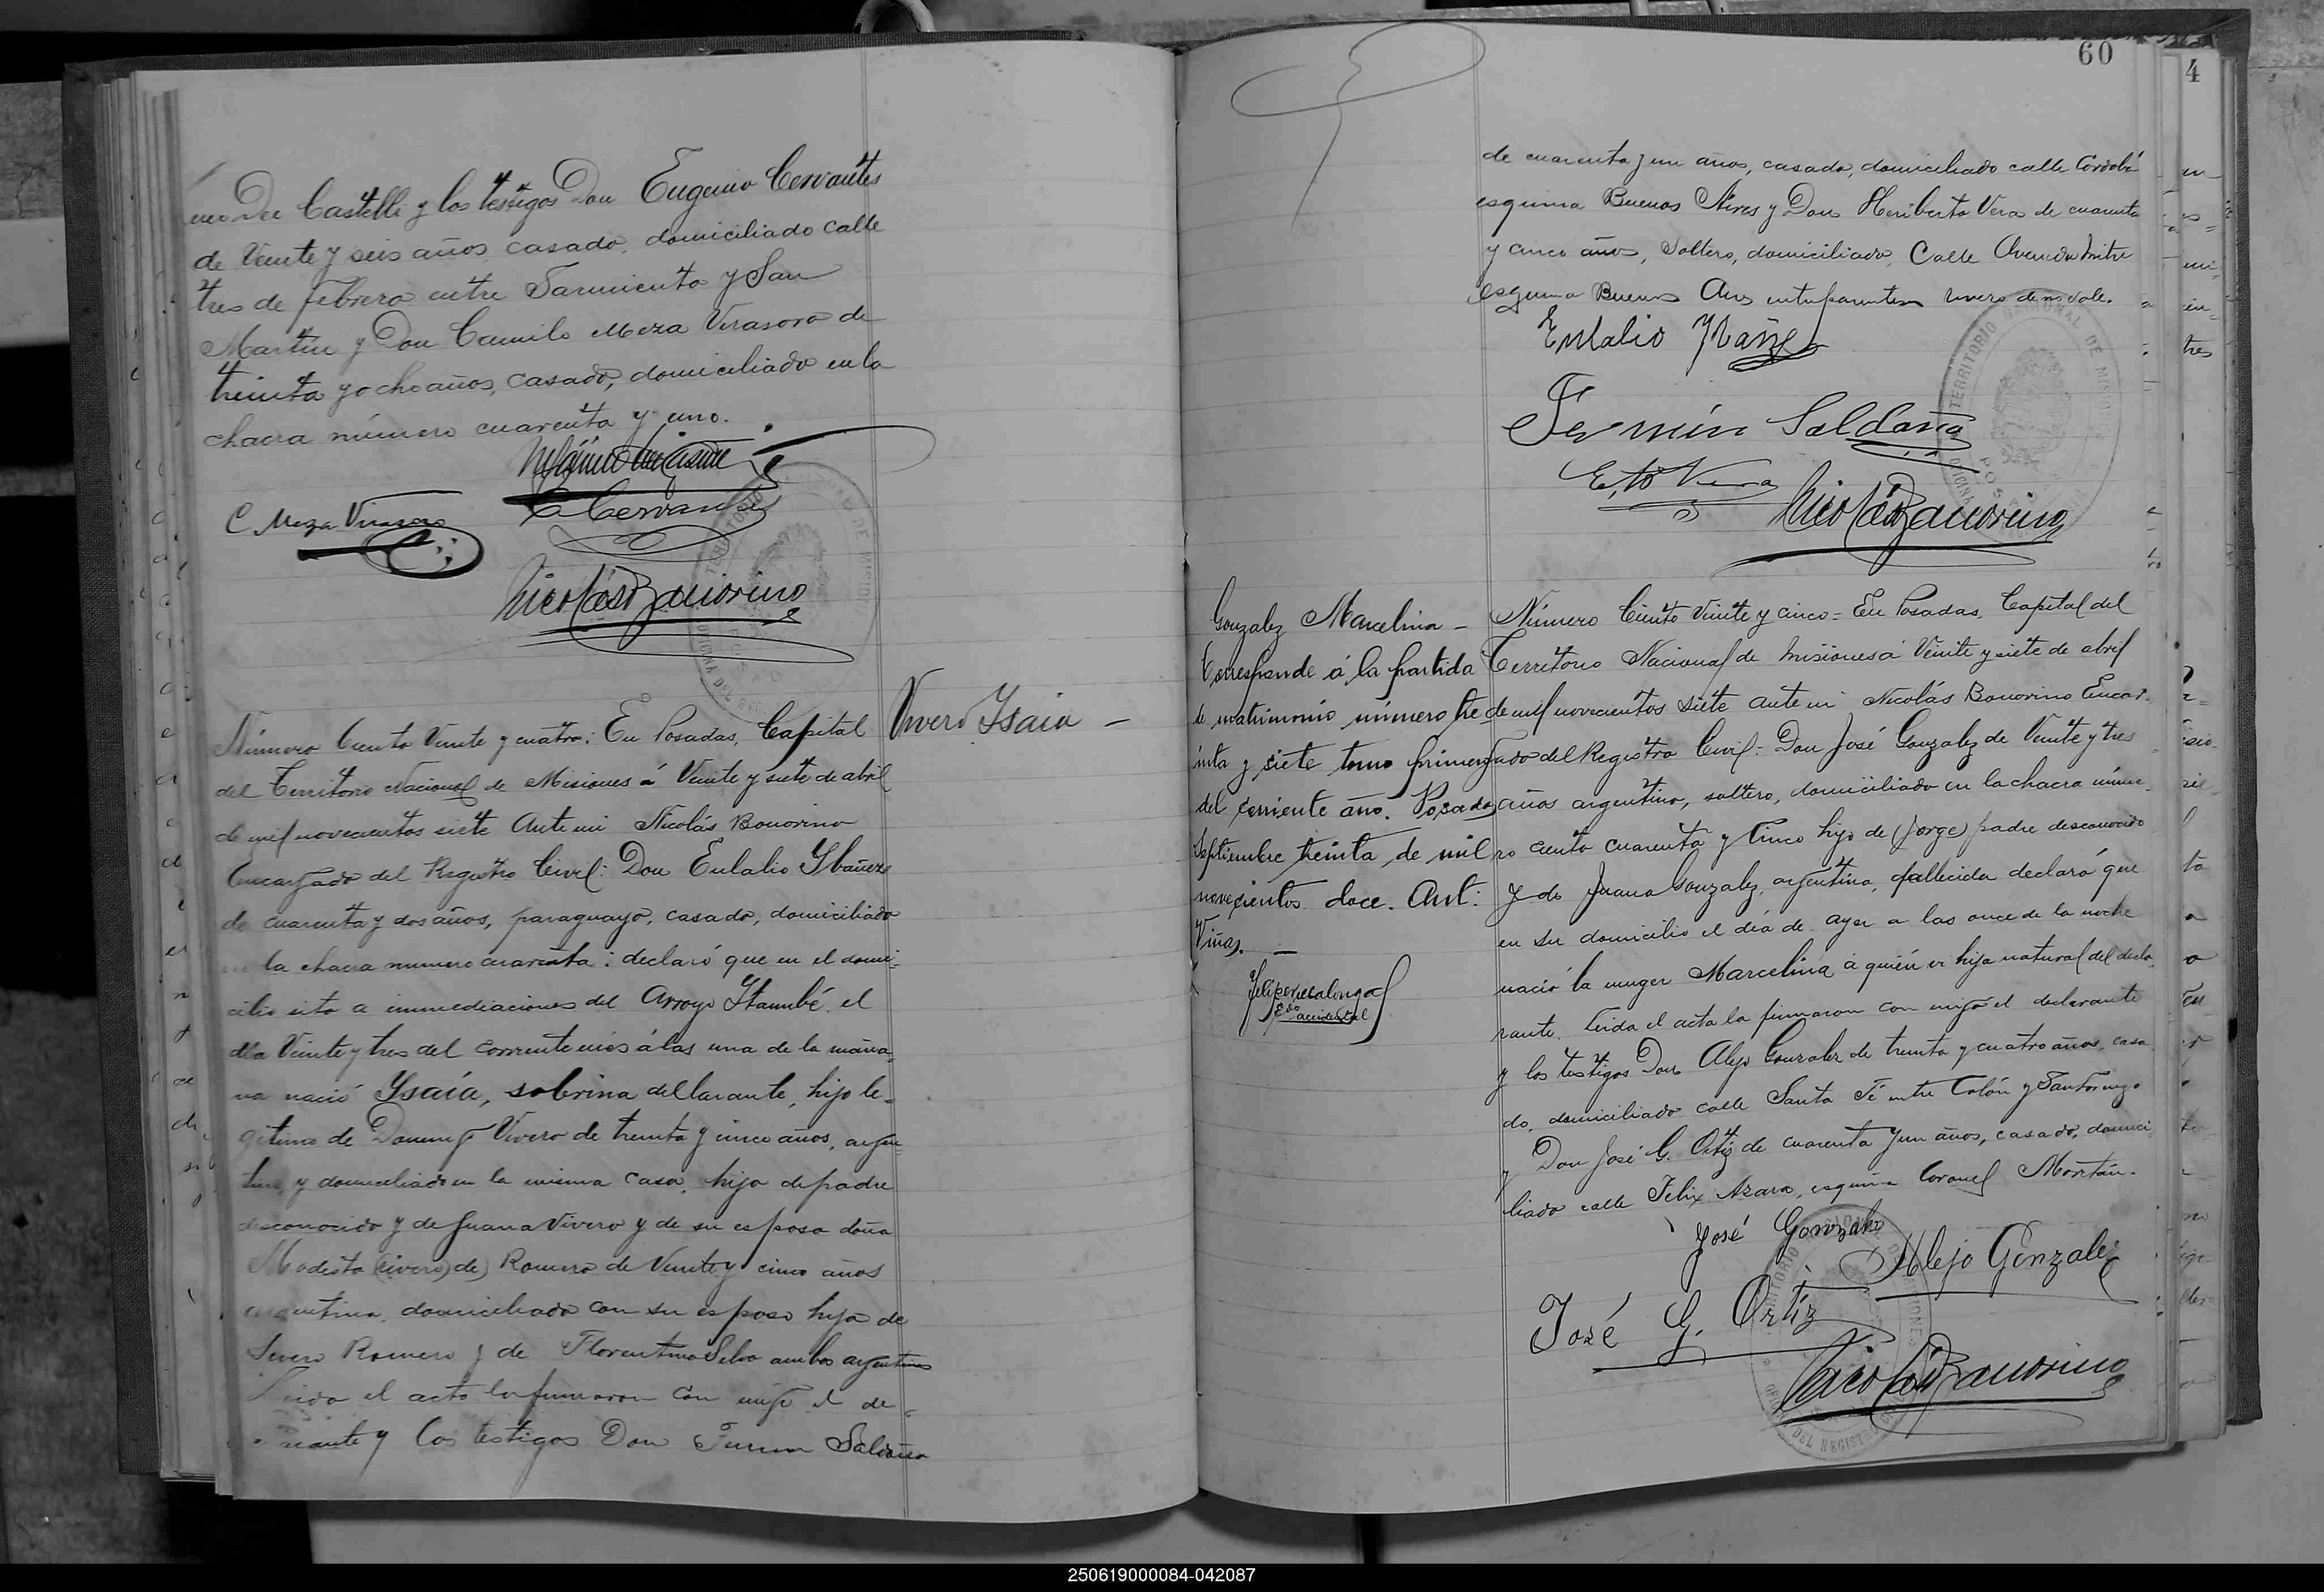 Dei Castelli y los testigos Don Eugenio Cervantes
de veinte y seis años, casado, domiciliado calle
tres de febrero entre Sarmiento y San
Martin y Don Camilo Meza Virasoro de
treinta y ocho años, casado, domiciliado en la
chacra número cuarenta y uno.
C. Meza Virasoro
E Cervantes
Nicolás Bonorino
Vivero Ysaia -
Número Ciento Veinte y cuatro: En Posadas, Capital
del Territorio Nacional de Misiones á Veinte y siete de abril
de mil novecientos siete Ante mi Nicolás Bonorino
Encargado del Registro Civil: Don Eulalio Ybañez
de cuarenta y dos años, paraguayo, casado, domiciliado
la chacra numero cuarenta: declaró que en el domi-
cilio sito a inmediaciones del Arroyo Itaimbé el
dia Veinte y tres del corriente mes á las una de la maña-
na nació Ysaía, sobrina del larante, hijo le-
gitimo de Domingo Vivero de treinta y cinco años, argen-
tino, y domiciliado en la misma casa, hijo de padre
desconocido y de Juana Vivero y de su esposa doña
Modesta (vivero) de) Romero de Veinte y cinco años
argentina, domiciliada con su esposo hija de
Severo Romero y de Florentina Silva ambos argentinos
Leida el acta la firmaron con migo el de-
rante y los testigos Don Fermin Saldaña
60
4
de cuarenta y un años, casado, domiciliado calle Córdoba
esquina Buenos Aires y Don Heriberto Vera de cuarenta
y cinco años, Soltero, domiciliado, Calle Avenida Mitre
esquina Buenos Aires entre parentesis vivero de no vale.
Eulalio Ybañez
Fermín Saldaña
E.to Vera
Nicolás Bonorino
TERRITORIO NACIONAL DE MISIONES
POSADAS
Gonzalez Marcelina -
Corresponde á la partida
de matrimonio número tre
inta y siete tomo primero
del corriente año. Posadas
Septiembre treinta de mil
novecientos doce. Ant:
Viñas. -
Edo accidental
Número Ciento Veinte y cinco = En Posadas, Capital del
Territorio Nacional de Misiones á Veinte y siete de abril
de mil novecientos siete ante mi Nicolás Bonorino Encar-
gado del Registro Civil: Don José Gonzalez de Veinte y tres
años argentino, soltero, domiciliado en la chacra núme-
ro ciento cuarenta y cinco hijo de (Jorge) padre desconocido
y de Juana Gonzalez, argentina, fallecida declaró que
en su domicilio el día de ayer a las once de la noche
nació la muger Marcelina á quién es hija natural del decla-
rante. Leida el acta la firmaron con migo el declarante
y los testigos Don Alejo Gonzalez de treinta y cuatro años, casa
do, domiciliado calle Santa Fé entre Colón y San Lorenzo
y Don José G. Ortiz de cuarenta y un años, casado, domici
liado calle Felix Azara, esquina Coronel Moritán.
José Gonzalez
Alejo Gonzalez
José G. Ortiz
Nicolás Bonorino
250619000084-042087